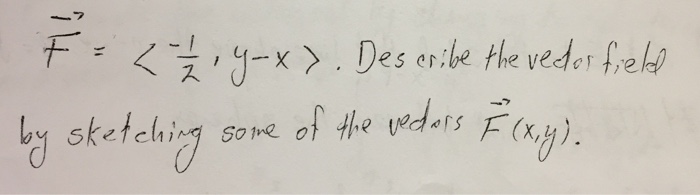 F⃗ = <-1/2, y-x>. Describe the vector field
by sketching some of the vectors F⃗(x,y).